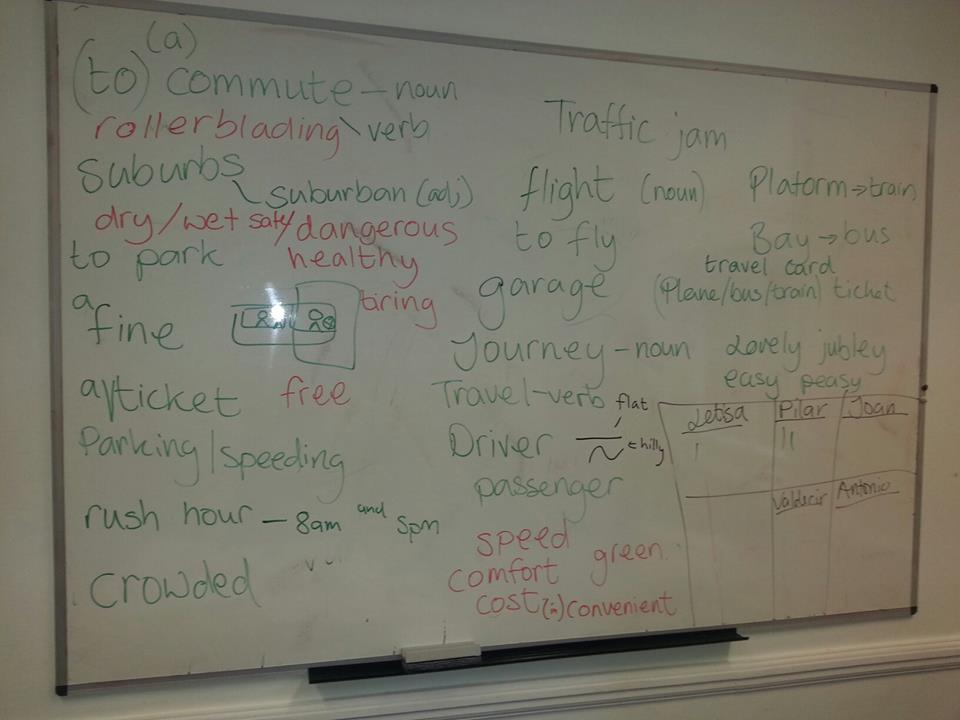 (a)
(to) commute – noun
rollerblading \ verb
suburbs
suburban (adj)
dry/wet safe/dangerous
to park healthy
tiring
a fine
a/ticket free
Parking/speeding
rush hour – 8am and 5pm
crowded
Traffic jam
flight (noun)
to fly
garage
Journey – noun
Travel – verb
flat
Driver
hilly
passenger
speed
comfort green
cost (in)convenient
Platorm → train
Bay → bus
travel card
(Plane/bus/train) ticket
Lovely jubley
easy peasy
Pilar Joan
Valdecir Antonio